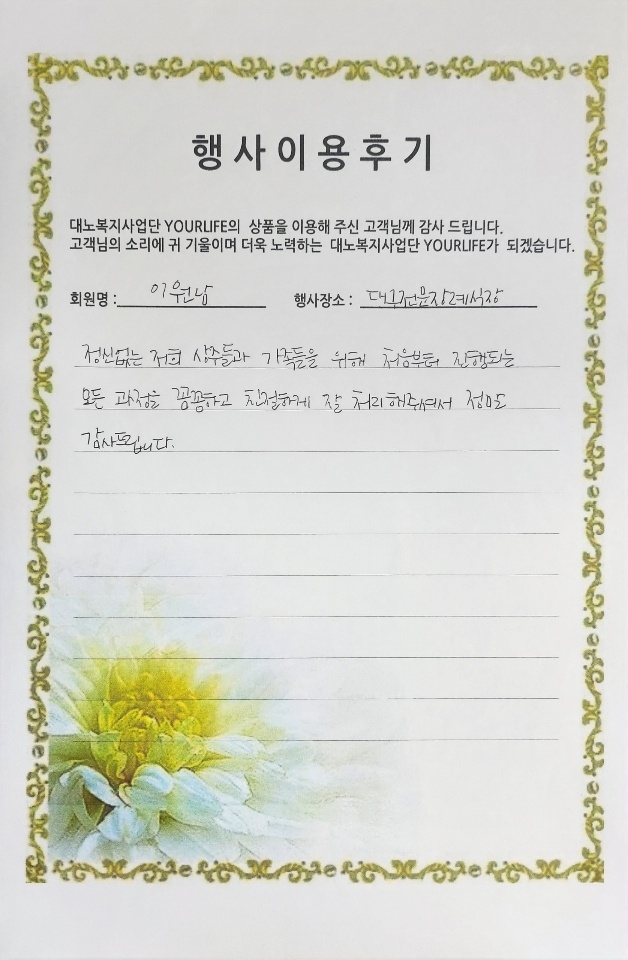 행사이용후기
대노복지사업단 YOURLIFE의 상품을 이용해 주신 고객님께 감사 드립니다.
고객님의 소리에 귀 기울이며 더욱 노력하는 대노복지사업단 YOURLIFE가 되겠습니다.
회원명 : 이원남 행사장소 : 대구전문장례식장
정신없는 저희 상주들과 가족들을 위해 처음부터 진행되는
모든 과정을 꼼꼼하고 친절하게 잘 처리해주셔서 정말로
감사드립니다.